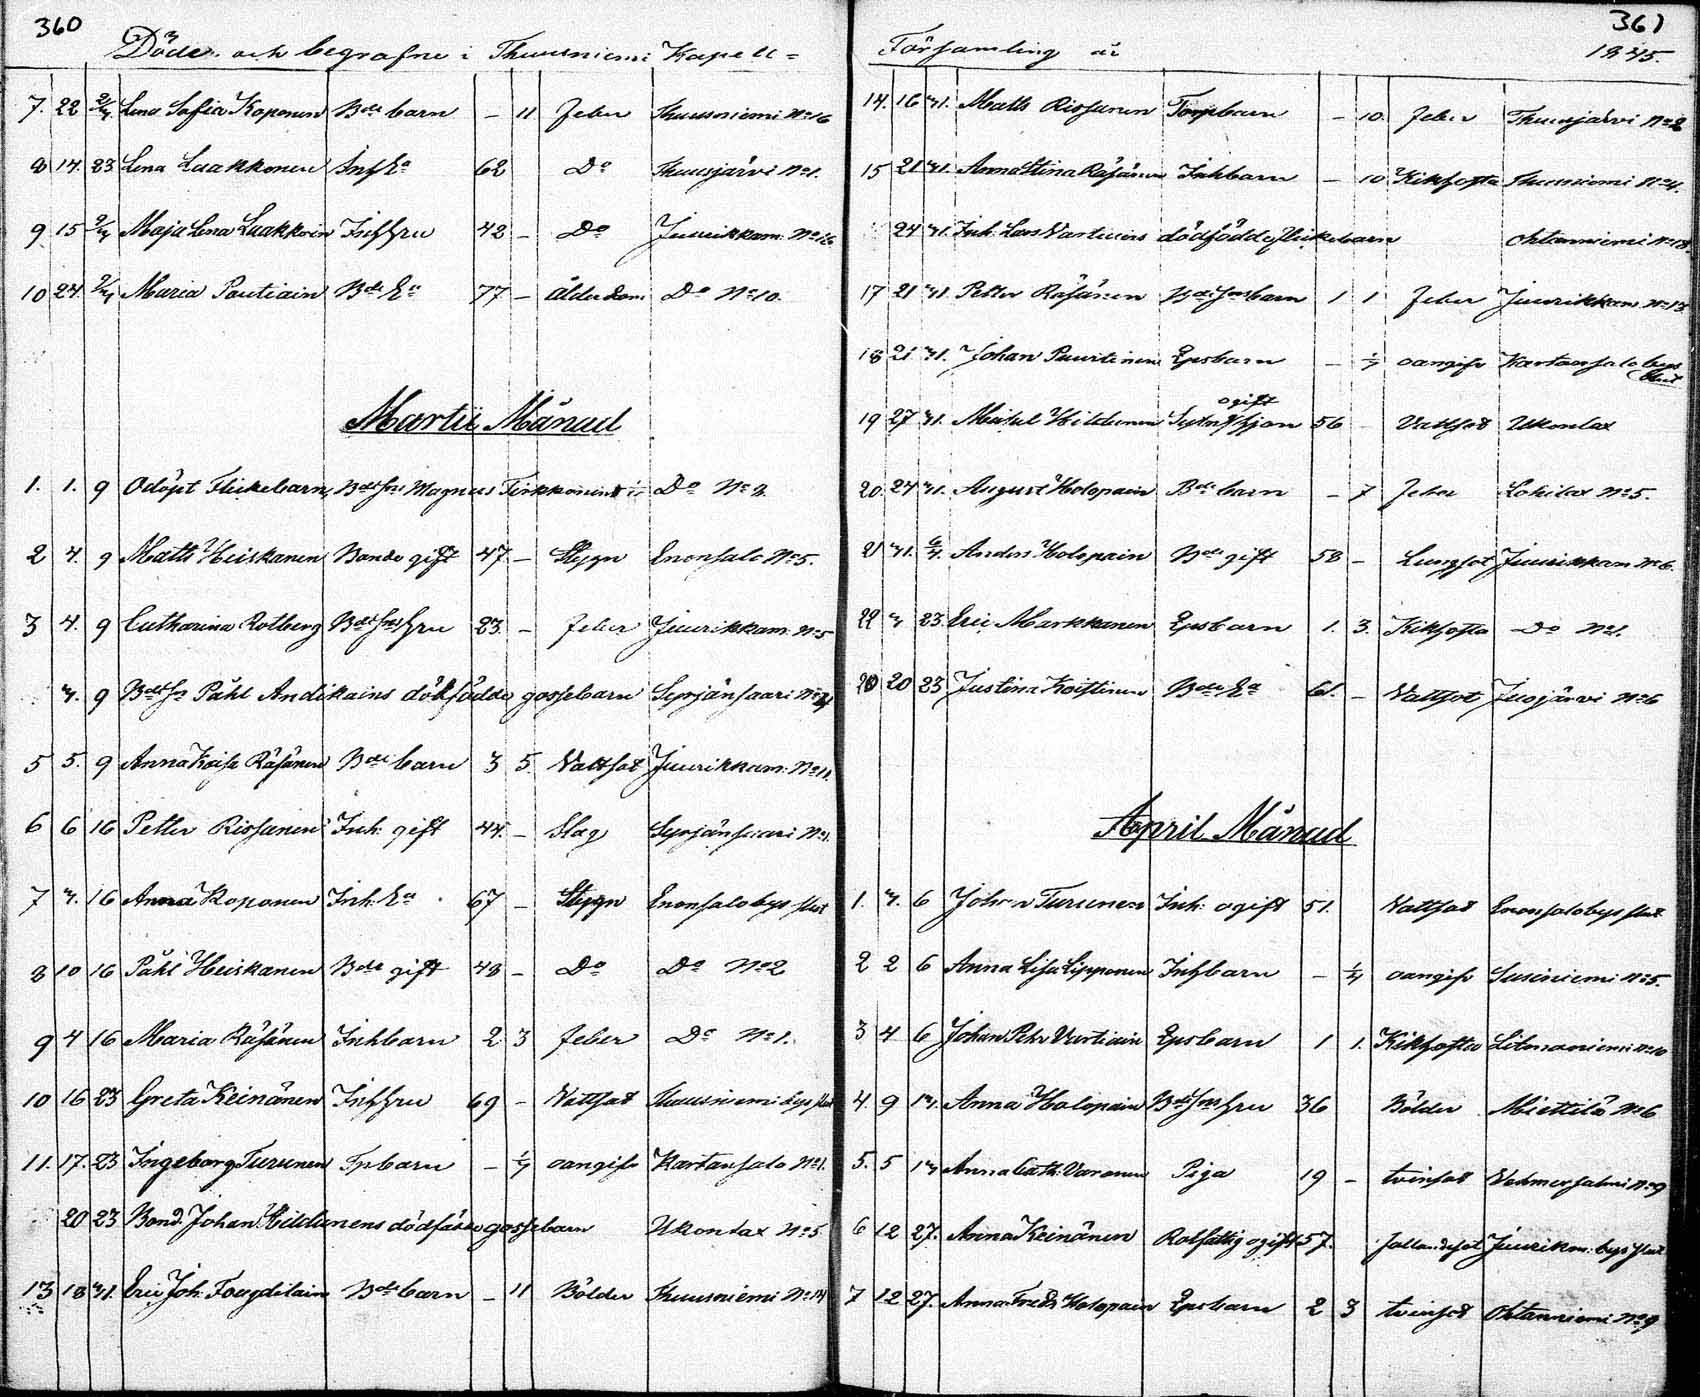 360
Döde och begrafne i Thuusniemi Kapell=
7. 22 2/4 Lena Sofia Koponen Bde barn – 11 Feber Thuusniemi No 16
8 14. 23 Lena Laakkonen Inh Ea 62 Do Thuusjärvi No 1.
9 15 2/4 Maja Lena Laakkoin Inh hru 42 – Do Juurikkam. No 16
10 24 2/4 Maria Pautiain Bde Ea 77 – ålderdom Do No 10.
Martii Månad
1. 1. 9 Odöpt Flickebarn, Bde sns Magnus Tirkkonens Do No 2.
2 4. 9 Matts Heiskanen Bonde gift 47 – Stygn Enonsalo No 5.
3 4. 9 Catharina Rotberg Bde sns hru 23. – feber Juurikkam. No 5
7. 9 Bde sn Påhl Andikains dödfödde gossebarn Syvjänsaari
5 5. 9 Anna Kaisa Räsänen Bde barn 3 5. Vattsot Juurikkam. No 11.
6 6 16 Petter Rissanen Inh. gift 44. – Slag Syvjänsaari No 1.
7 7. 16 Anna Koponen Inh. Ea 67 – Stygn Enonsalo bys slut
8 10 16 Påhl Heiskanen Bde gift 48 – Do Do No 2
9 4 16 Maria Räsänen Inhbarn 2 3 feber Do No 1.
10 16 23 Greta Keinänen Inh hru 69 – Vattsot Thuusniemi bys slut
11. 17. 23 Ingeborg Turunen Tpbarn – 1/4 oangifv Kartansalo No 1.
20 23 Bond. Johan Hildunens dödfödde gossebarn Ukonlax No 5
13 18 31. Eric Joh. Fougdilain Bde barn – 11 Bölder Thuusniemi No 14
361
Församling år 1845.
14. 16 31. Matts Rissanen Torpbarn – 10. feber Thuusjärvi No 2
15 21 31. Anna Stina Räsänen Inhbarn – 10 Kikhosta Thuusniemi No 4.
24 31. Inh. Lars Vartiains dödfödde flickebarn Ohtanniemi No 18.
17 21 31 Petter Räsänen Bde sns barn 1 1 feber Juurikkam. No 13.
18 21 31. Johan Puurtinen Epsbarn – 1/4 oangifv Kartansalo bys
slut
ogift
19 27 31. Mickel Hildunen 56 – Vattsot Ukonlax
20. 24 31. August Holopain Bde barn – 7 feber Lohilax No 5.
21 31. 6/4. Anders Holopain Bde gift 58 – Lungsot Juurikkam No 6.
22 7 23. Eric Markkanen Epsbarn 1. 3. Kikhosta Do No 1.
20 23 Justina Koistinen Bde Ea 61. – Vattsot Juojärvi No 6
April Månad
1. 7. 6 Johan Turunen Inh: ogift 51. Vattsot Enonsalo bys slut
2 2 6 Anna Lisa Lipponen Inhbarn – 1/4 oangifv Susiniemi No 5.
3 4 6 Johan Petr Vartiain Epsbarn 1 1. Kikhosta Litmaniemi No 10
4. 9 13. Anna Holopain Bde sns hru 36 Bölder Miettilä No 6
5. 5 13 Anna Cath. Varonen Piga 19 – tvinsot Vehmersalmi No 9
6 12 27. Anna Keinänen Rotfattig ogift 57. fallandesot Juurikm. bys slut
7 12 27. Anna Fredr. Holopain Epsbarn 2 3 tvinsot Ohtanniemi No 9